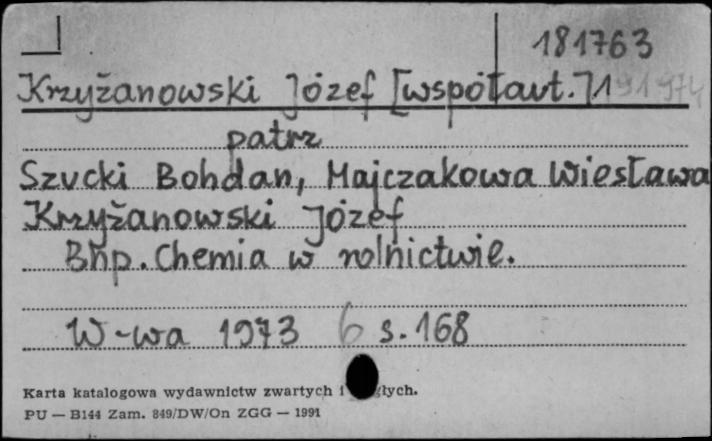 181763
Krzyżanowski Józef [współaut.]1
patrz
Szucki Bohdan, Majczakowa Wiesława
Krzyżanowski Józef
Bhp. Chemia w rolnictwie.
W-wa 1973 6 s. 168
Karta katalogowa wydawnictw zwartych i
PU — B144 Zam. 849/DW/On ZGG — 1991